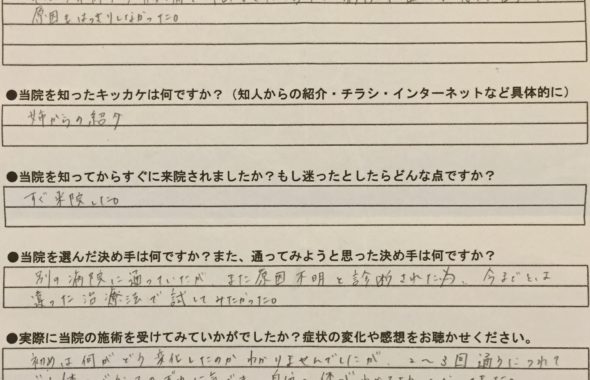 原因もはっきりしなかった。
●当院を知ったキッカケは何ですか？（知人からの紹介・チラシ・インターネットなど具体的に）
姉からの紹介
●当院を知ってからすぐに来院されましたか？もし迷ったとしたらどんな点ですか？
すぐ来院した。
●当院を選んだ決め手は何ですか？また、通ってみようと思った決め手は何ですか？
別の病院に通っていたが、また原因不明と診断されたため、今までとは
違った治療法で試してみたかった。
●実際に当院の施術を受けてみていかがでしたか？症状の変化や感想をお聴かせください。
初めは何がどう変化したのかわかりませんでしたが、2〜3回通うにつれて